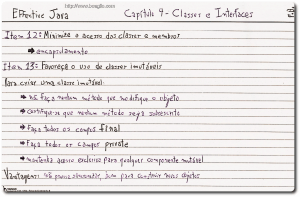 http://www.bragilio.com
Effective Java Capítulo 4 - Classes e Interfaces
Item 12: Minimize o acesso das classes e membros
→ encapsulamento
Item 13: Favoreça o uso de classes imutáveis
Para criar uma classe imutável:
→ Não faça nenhum método que modifique o objeto
→ Certifique-se que nenhum método seja sobrescrito
→ Faça todos os campos final
→ Faça todos os campos private
→ mantenha acesso exclusivo para qualquer componente mutável
Vantagens: não precisa sincronizar, bom para construir novos objetos